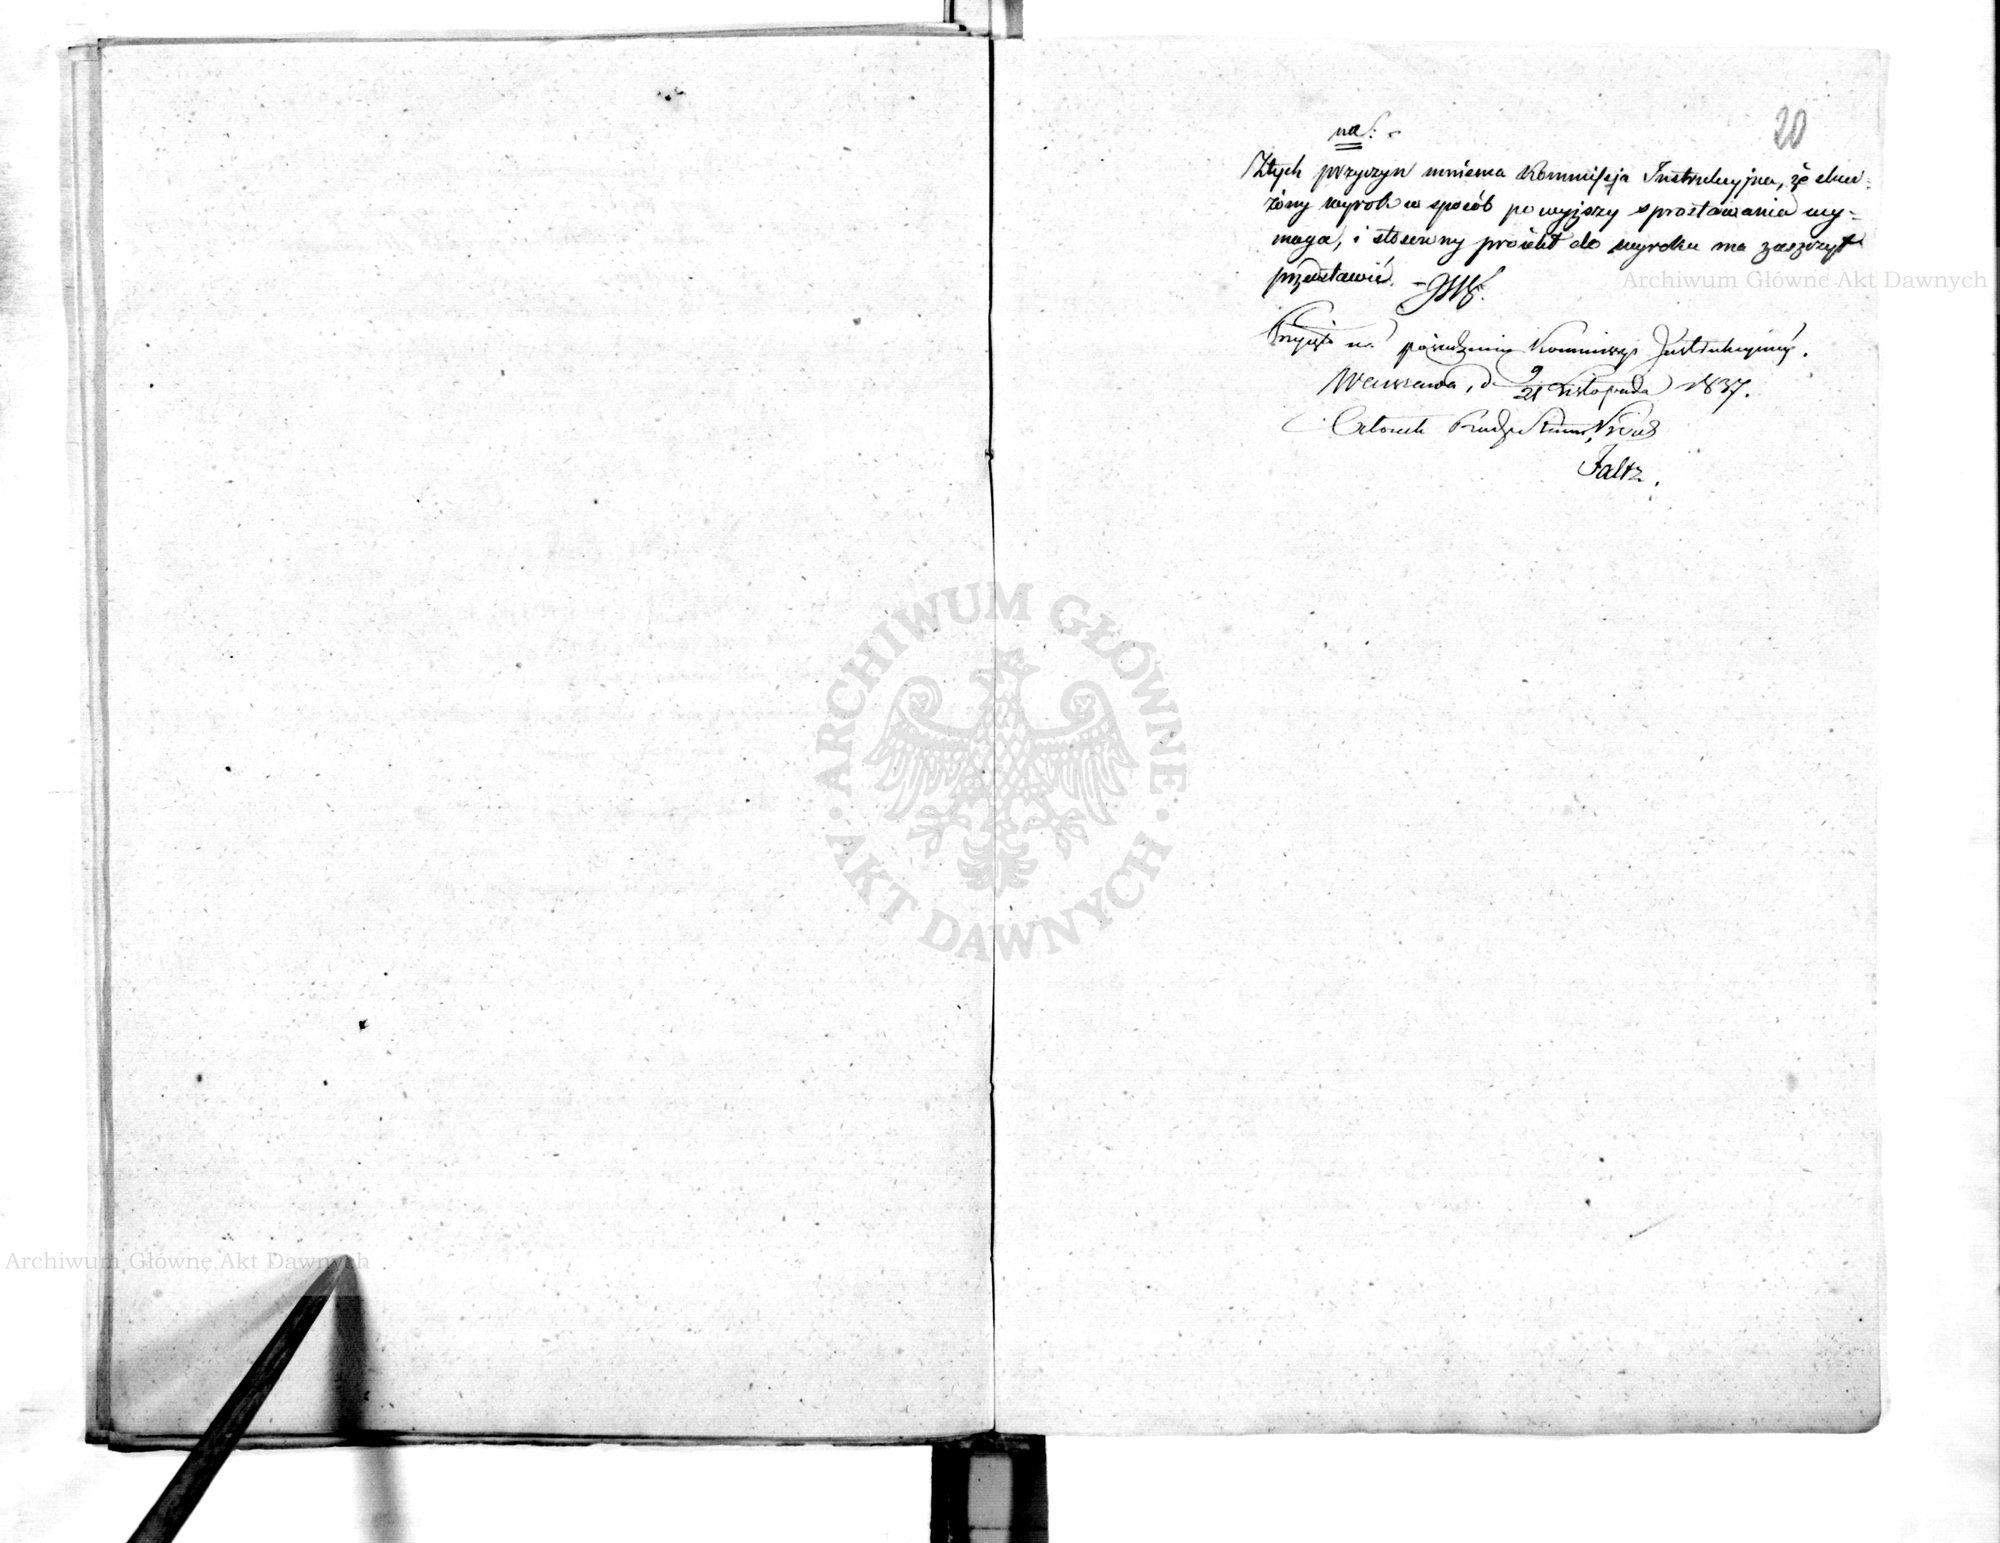 20
na:
Ztych przyczyn mniema Kommissja Instrukcyjna, że skar-
żony wyrok w sposób powyższy sprostowania wy-
maga, i stosowny proiekt do wyroku ma zaszczyt
przedstawić.
Przyięto na posiedzeniu Kommissyi Instrukcyinéy.
Warszawa, d 9/21 Listopada 1837.
Członek
Faltz.
Archiwum Główne Akt Dawnych
ARCHIWUM GŁÓWNE AKT DAWNYCH
Archiwum Główne Akt Dawnych